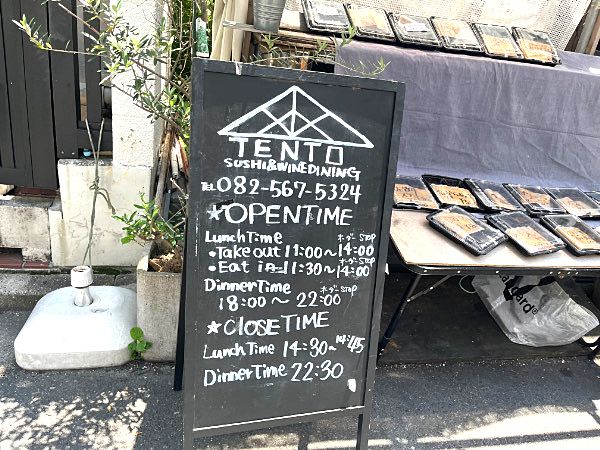 TENTO
SUSHI&WINEDINING
TEL 082-567-5324
★OPENTIME
LunchTime オーダーSTOP
•Take out 11:00~14:00
•Eat in 11:30~14:00
DinnerTime オーダーSTOP
18:00~22:00
★CLOSETIME
LunchTime 14:30~14:45
DinnerTime 22:30